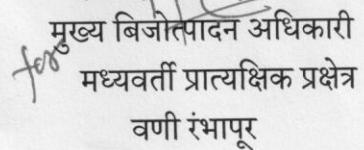 for मुख्य बिजोत्पादन अधिकारी
मध्यवर्ती प्रात्यक्षिक प्रक्षेत्र
वणी रंभापूर